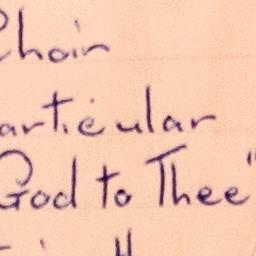 Choir
articular
God to Thee"